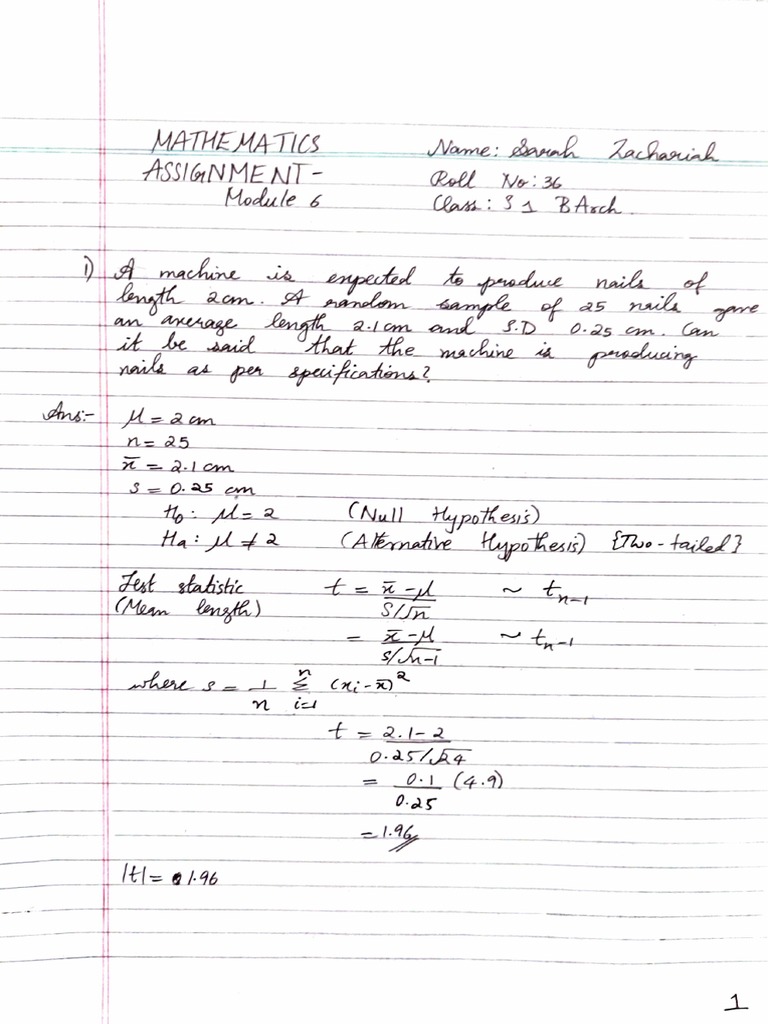 MATHEMATICS
ASSIGNMENT-
Module 6
Name: Sarah Zachariah
Roll No: 36
Class: S1 BArch
1) A machine is expected to produce nails of
length 2cm. A random sample of 25 nails gave
an average length 2.1cm and S.D 0.25 cm. Can
it be said that the machine is producing
nails as per specifications?
Ans:- μ = 2cm
n = 25
x̄ = 2.1 cm
s = 0.25 cm
H₀: μ = 2 (Null Hypothesis)
Ha: μ ≠ 2 (Alternative Hypothesis) {Two-tailed}
Test statistic t = x̄-μ / S/√n ~ tn-1
(Mean length)
= x̄-μ / s/√n-1 ~ tn-1
where s = 1/n Σ i=1 n (xi-x̄)²
t = 2.1-2 / 0.25/√24
= 0.1/0.25 (4.9)
= 1.96
|t| = 1.96
1